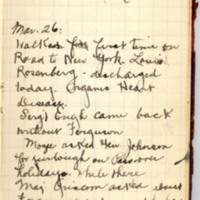 Mar. 26:
Walked for first time on
Road to New York. Louis
Rosenberg - discharged
today. Organic Heart
Disease.
Serg't Engh came back
without Ferguson
Moye asked Gen Johnson
for furlough on Passover
holidays. While there
Maj Griscom asked about